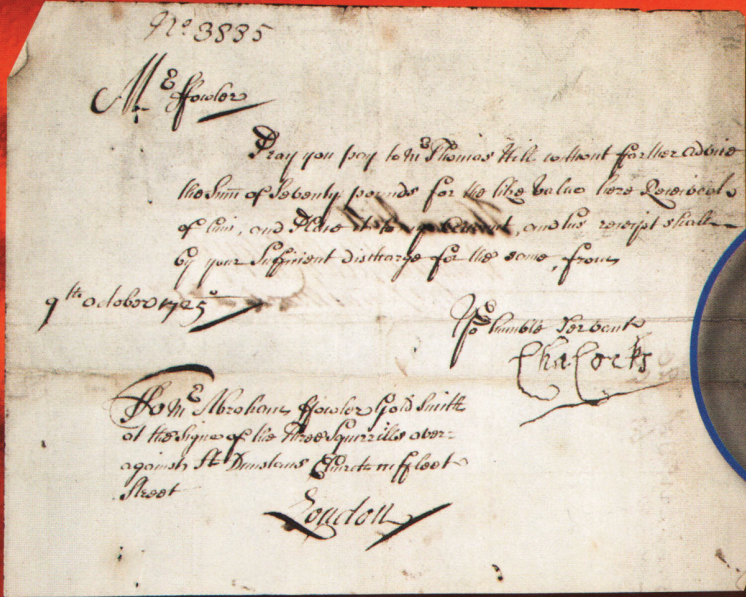 No 3835
Mr ffowler
Pray you pay to Mr Thomas Hill without farther advice
the Sum of Seventy pounds for the like Value here Received
of him, and Place it to my Account, and his receipt shall
by your Sufficient discharge for the same, from
9th october 1725
Yor humble Servant
Cha Cocks
To Mr Abraham ffowler Gold Smith
at the Signe of the three Squirrills over=
against St Dunstans Church in ffleet
Street
London